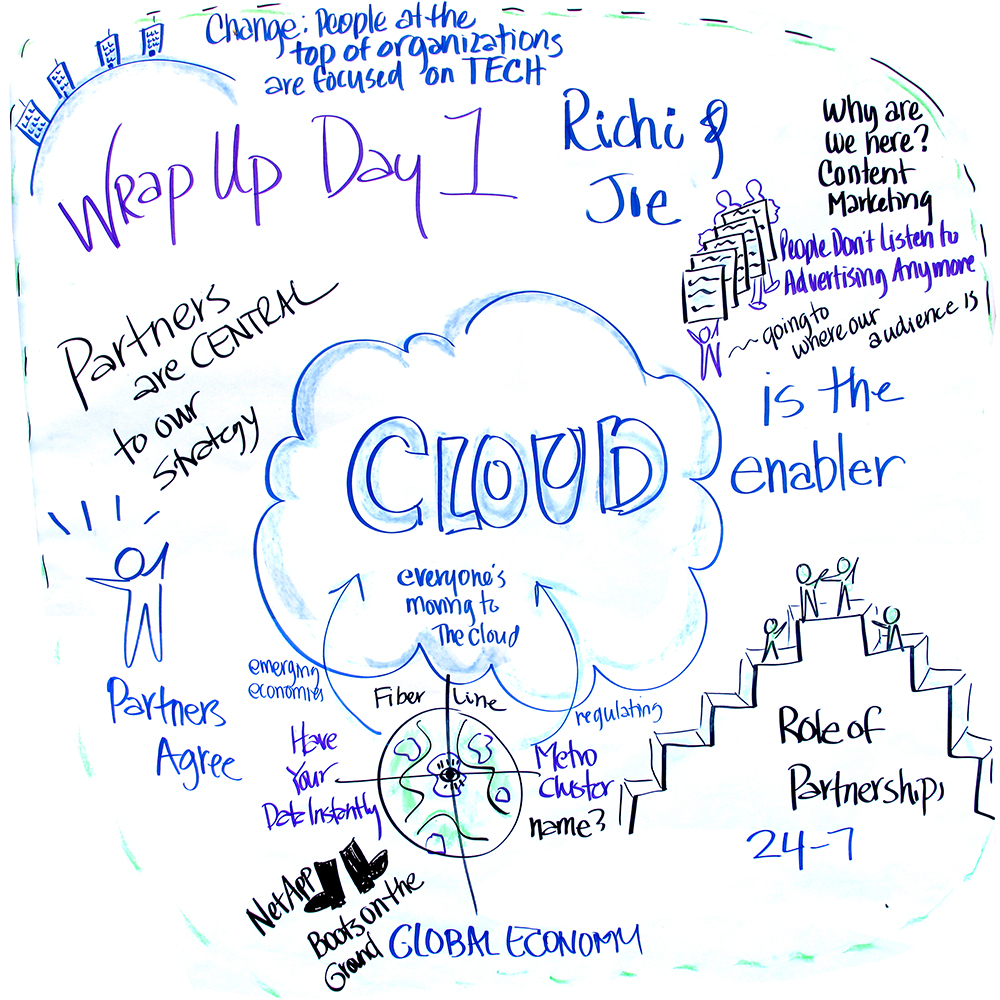 Change: People at the
top of organizations
are focused on TECH
Wrap Up Day 1
Richi &
Joe
Why are
we here?
Content
Marketing
People Don't Listen to
Advertising Anymore
going to
where our
audience is
Partners
are CENTRAL
to our
Strategy
CLOUD
is the
enabler
everyone's
moving to
The Cloud
emerging
economies
Fiber Line
regulating
Partners
Agree
Have
Your
Data Instantly
Metro
Cluster
name?
Role of
Partnership,
24-7
NetApp
Boots on the
Ground
GLOBAL ECONOMY